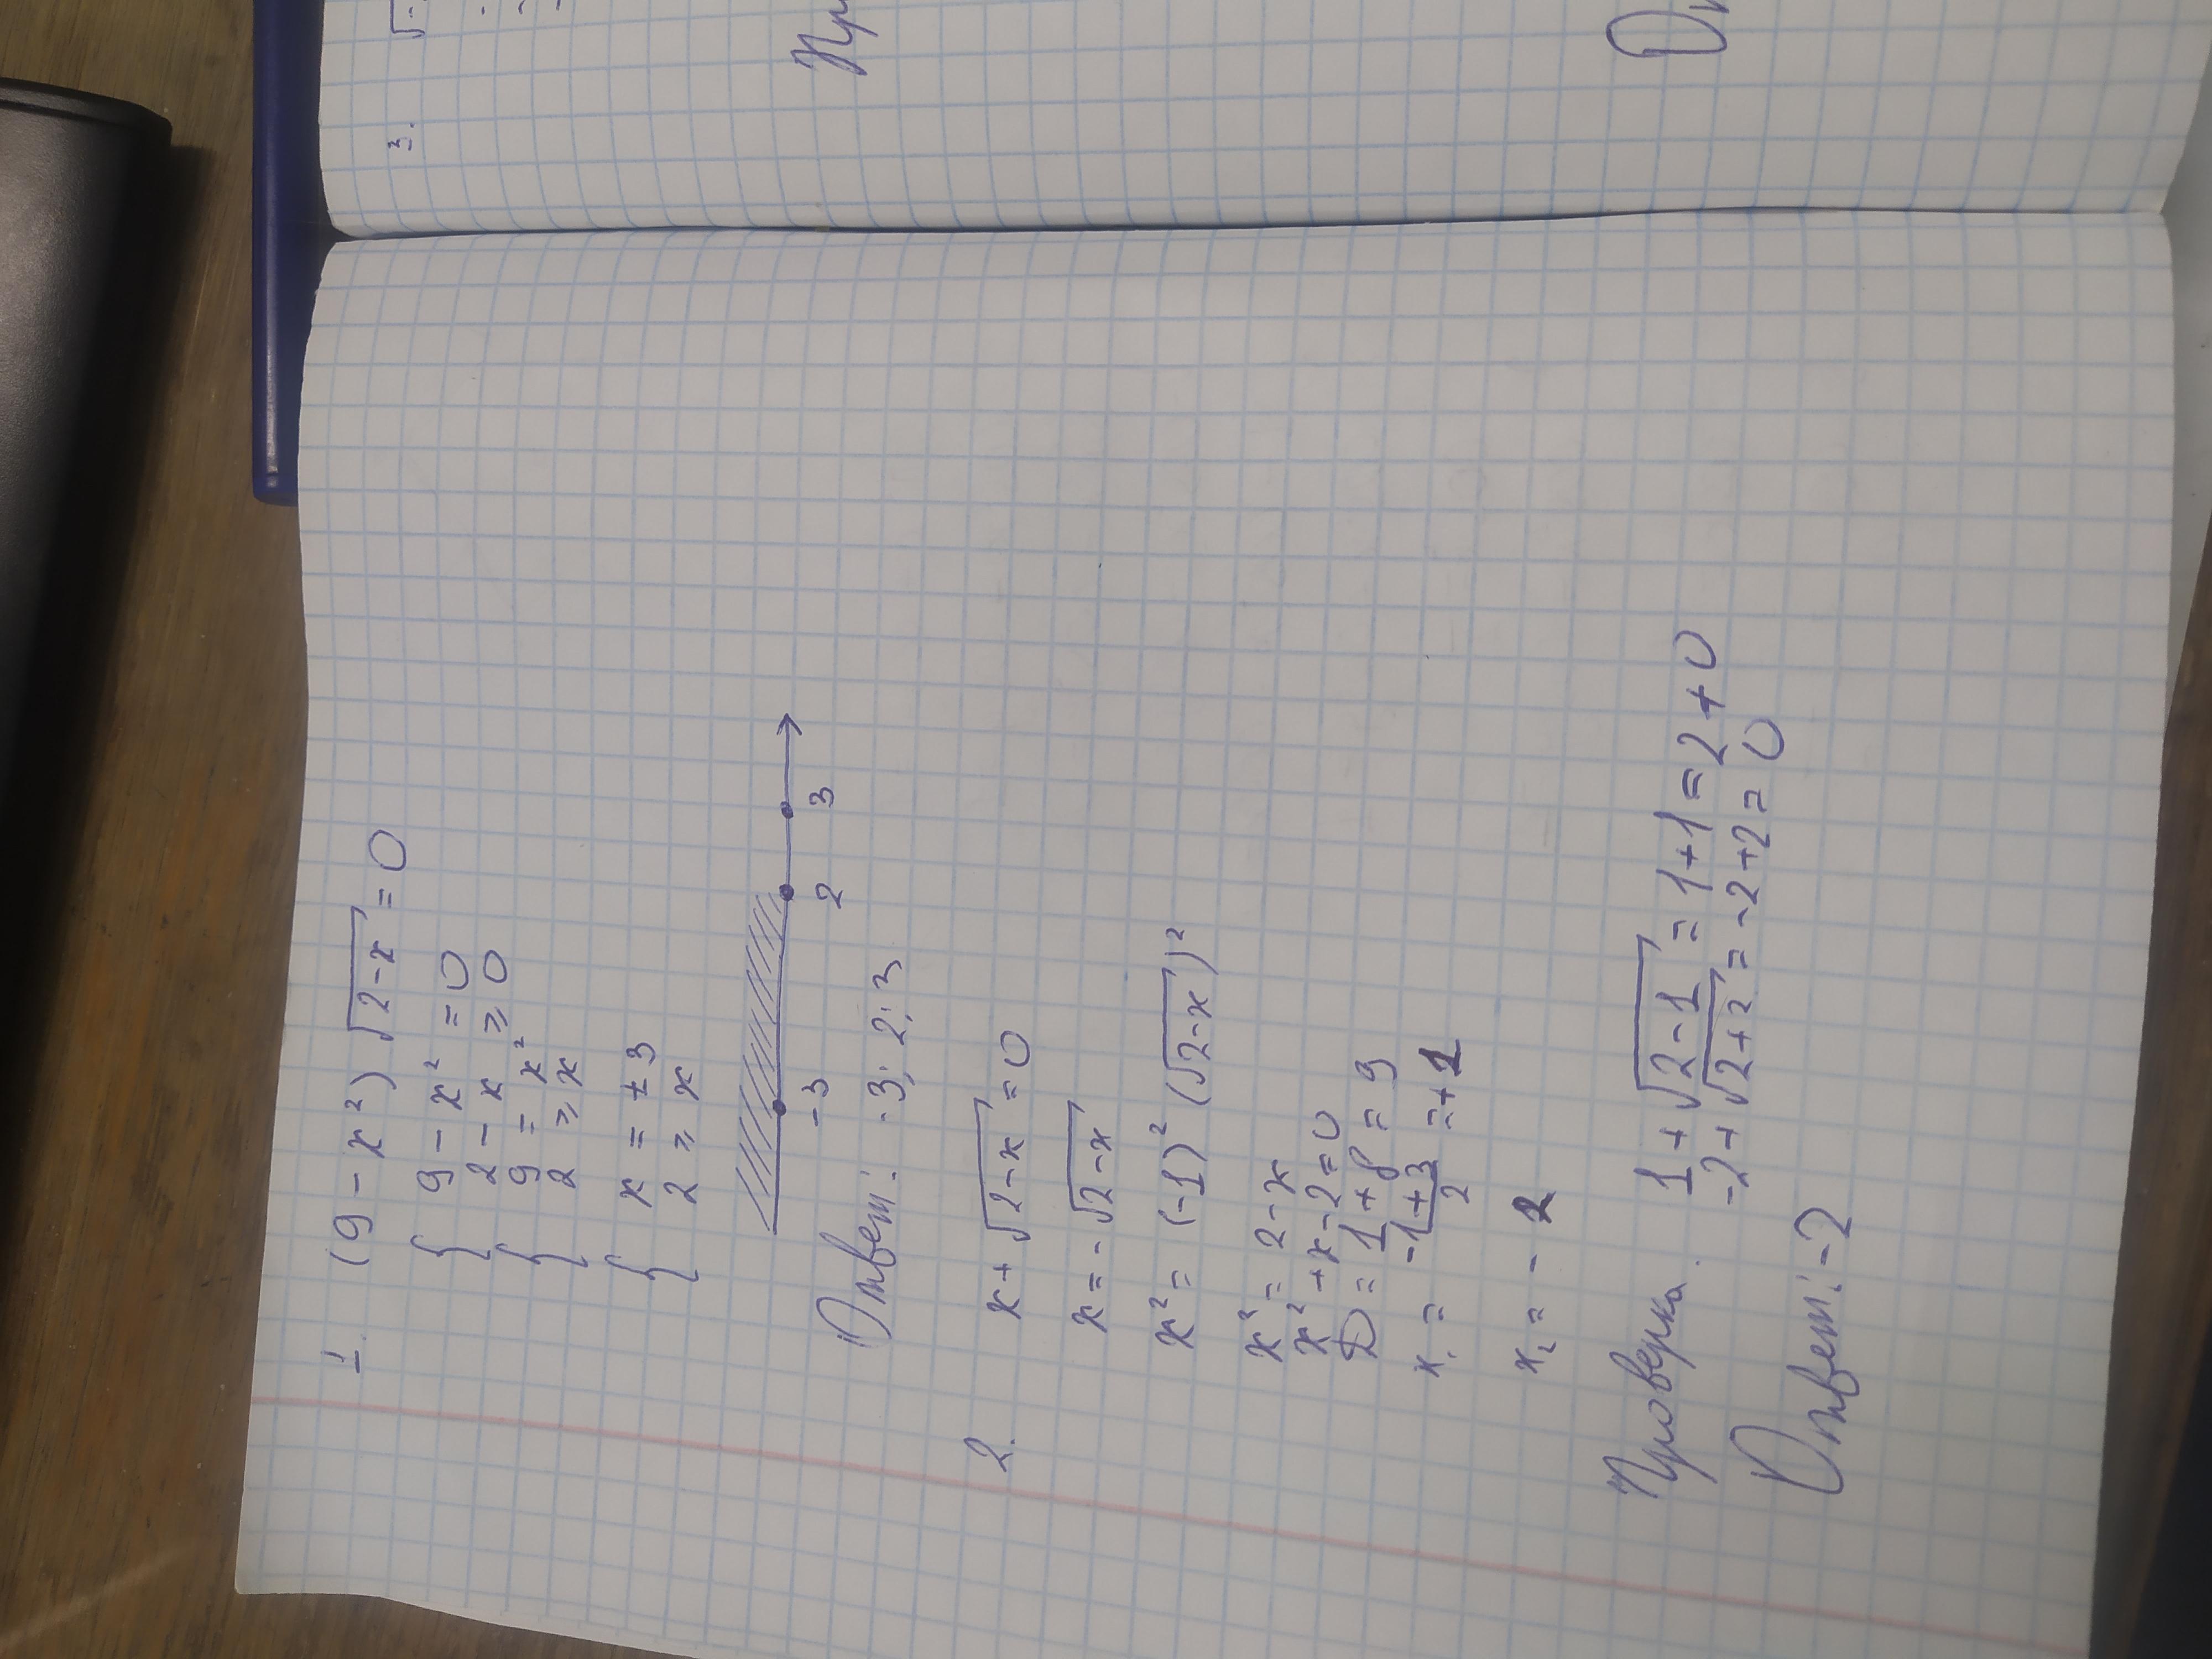 1. (9 - x²) √2-x = 0
{ 9 - x² = 0
2 - x ≥ 0
{ 9 = x²
2 ≥ x
{ x = ±3
2 ≥ x
-3 2 3
Ответ: -3; 2; 3
2. x + √2-x = 0
x = -√2-x
x² = (-1)² (√2-x)²
x² = 2-x
x² + x - 2 = 0
D = 1 + 8 = 9
x₁ = -1+3/2 = +1
x₂ = -2
Проверка. 1 + √2-1 = 1+1 = 2 + 0
-2 + √2+2 = -2+2 = 0
Ответ: -2
3.